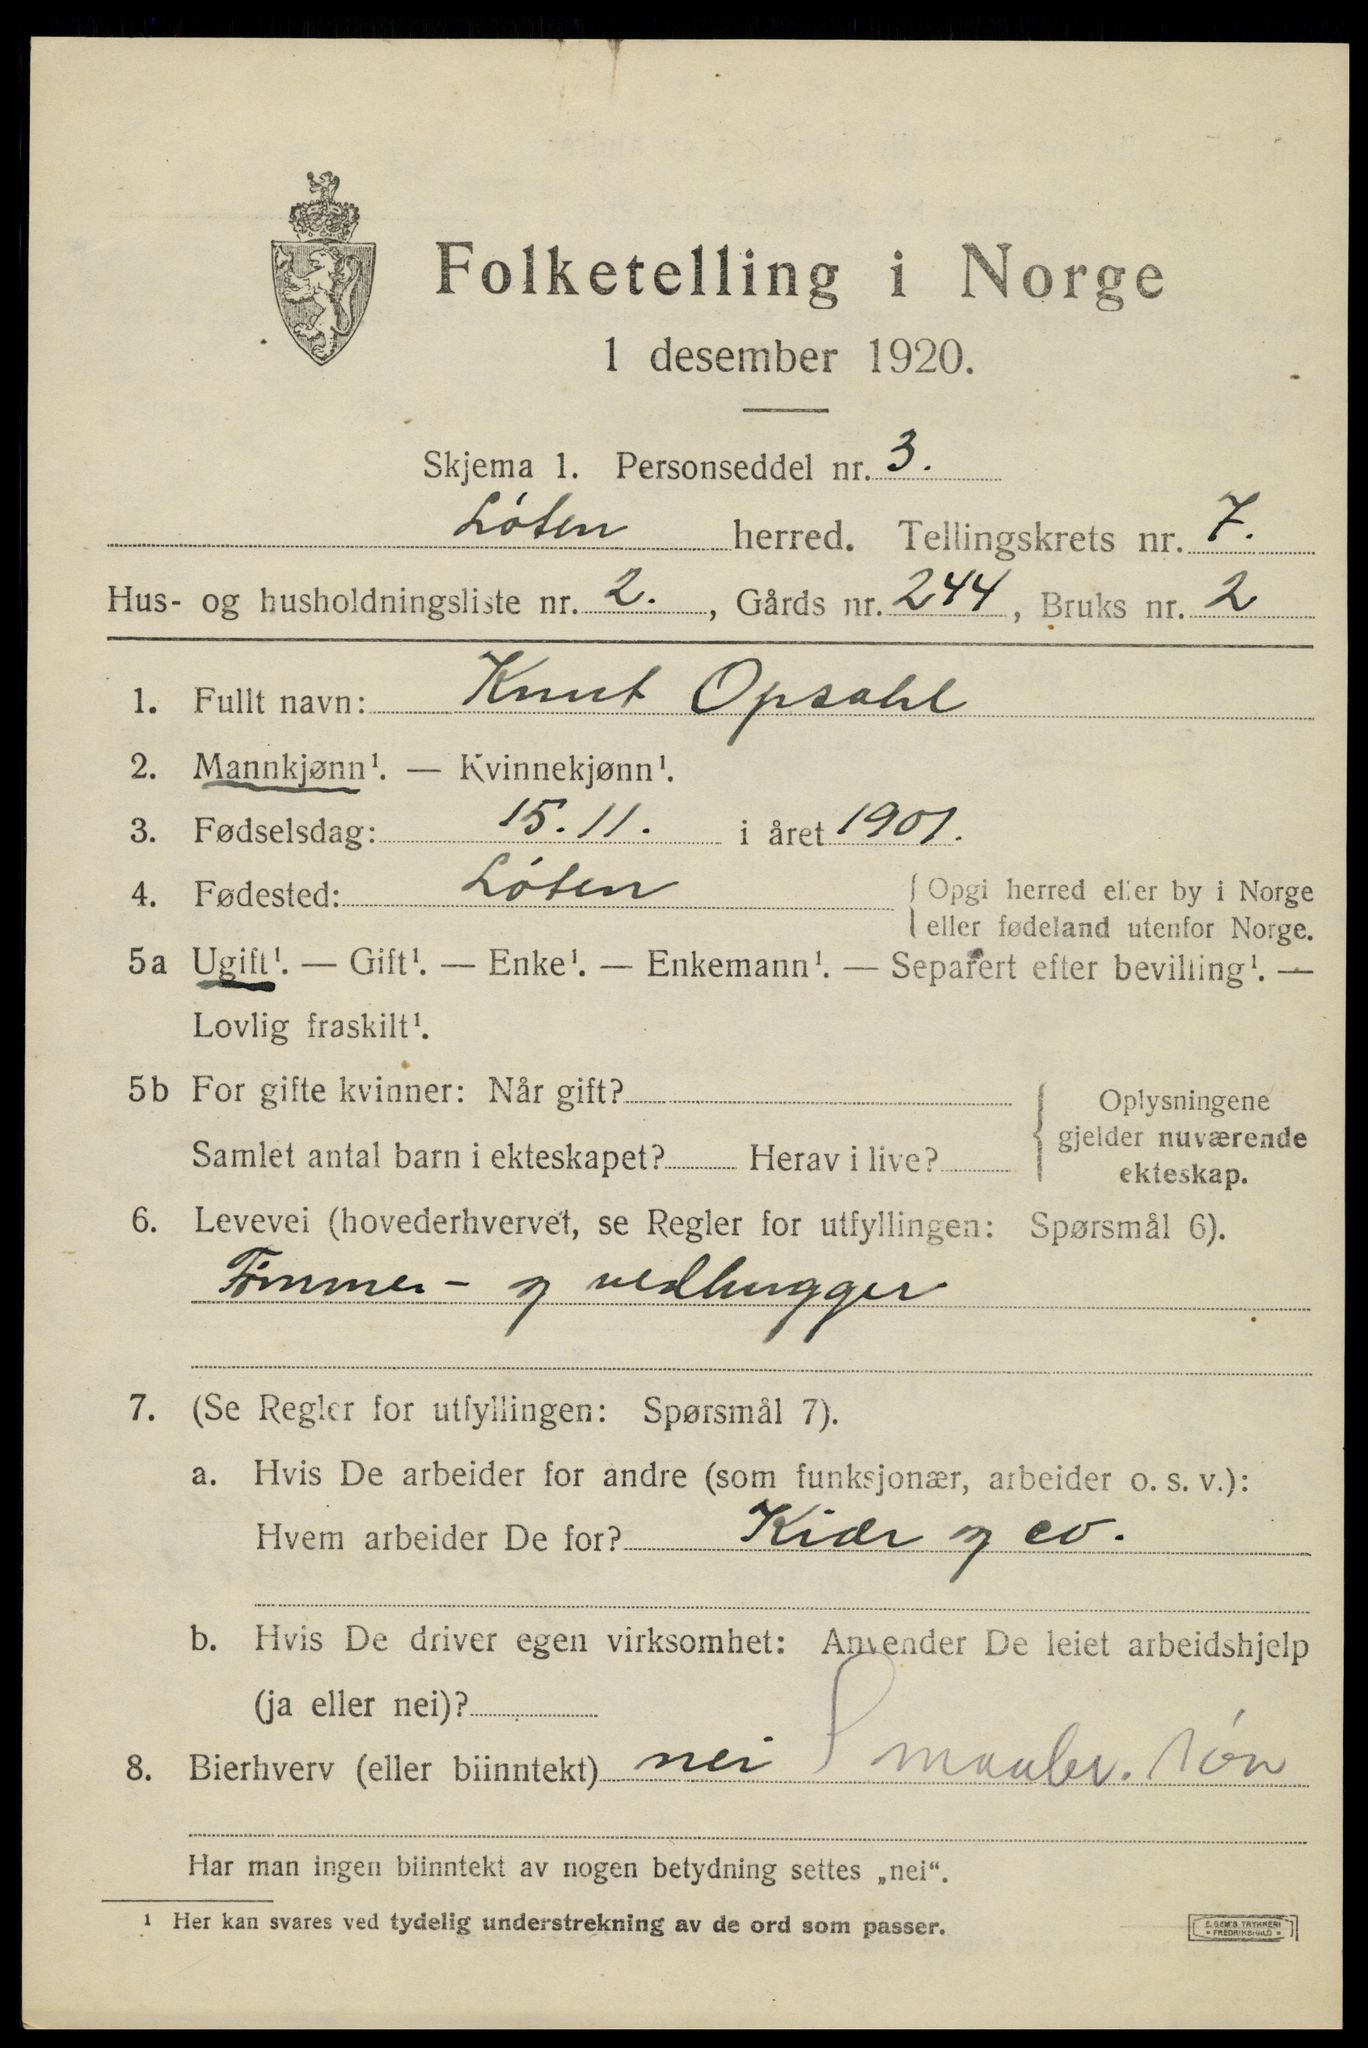 Folketelling i Norge
1 desember 1920.
Skjema 1. Personseddel nr. 3.
Løten herred. Tellingskrets nr. 7.
Hus- og husholdningsliste nr. 2., Gårds nr. 244, Bruks nr. 2
1. Fullt navn: Knut Opsahl
2. Mannkjønn¹. — Kvinnekjønn¹.
3. Fødselsdag: 15.11. i året 1901.
4. Fødested: Løten { Opgi herred eller by i Norge
eller fødeland utenfor Norge.
5a Ugift¹. — Gift¹. — Enke¹. — Enkemann¹. — Separert efter bevilling¹. —
Lovlig fraskilt¹.
5b For gifte kvinner: Når gift?
Samlet antal barn i ekteskapet? Herav i live?
Oplysningene
gjelder nuværende
ekteskap.
6. Levevei (hovederhvervet, se Regler for utfyllingen: Spørsmål 6).
Tømmer- og vedhugger
7. (Se Regler for utfyllingen: Spørsmål 7).
a. Hvis De arbeider for andre (som funksjonær, arbeider o. s. v.):
Hvem arbeider De for? Kiær og co.
b. Hvis De driver egen virksomhet: Anvender De leiet arbeidshjelp
(ja eller nei)?
8. Bierhverv (eller biinntekt) nei Smaabr. søn
Har man ingen biinntekt av nogen betydning settes „nei“.
¹ Her kan svares ved tydelig understrekning av de ord som passer.
E. SEM'S TRYKKERI
FREDRIKSHALD